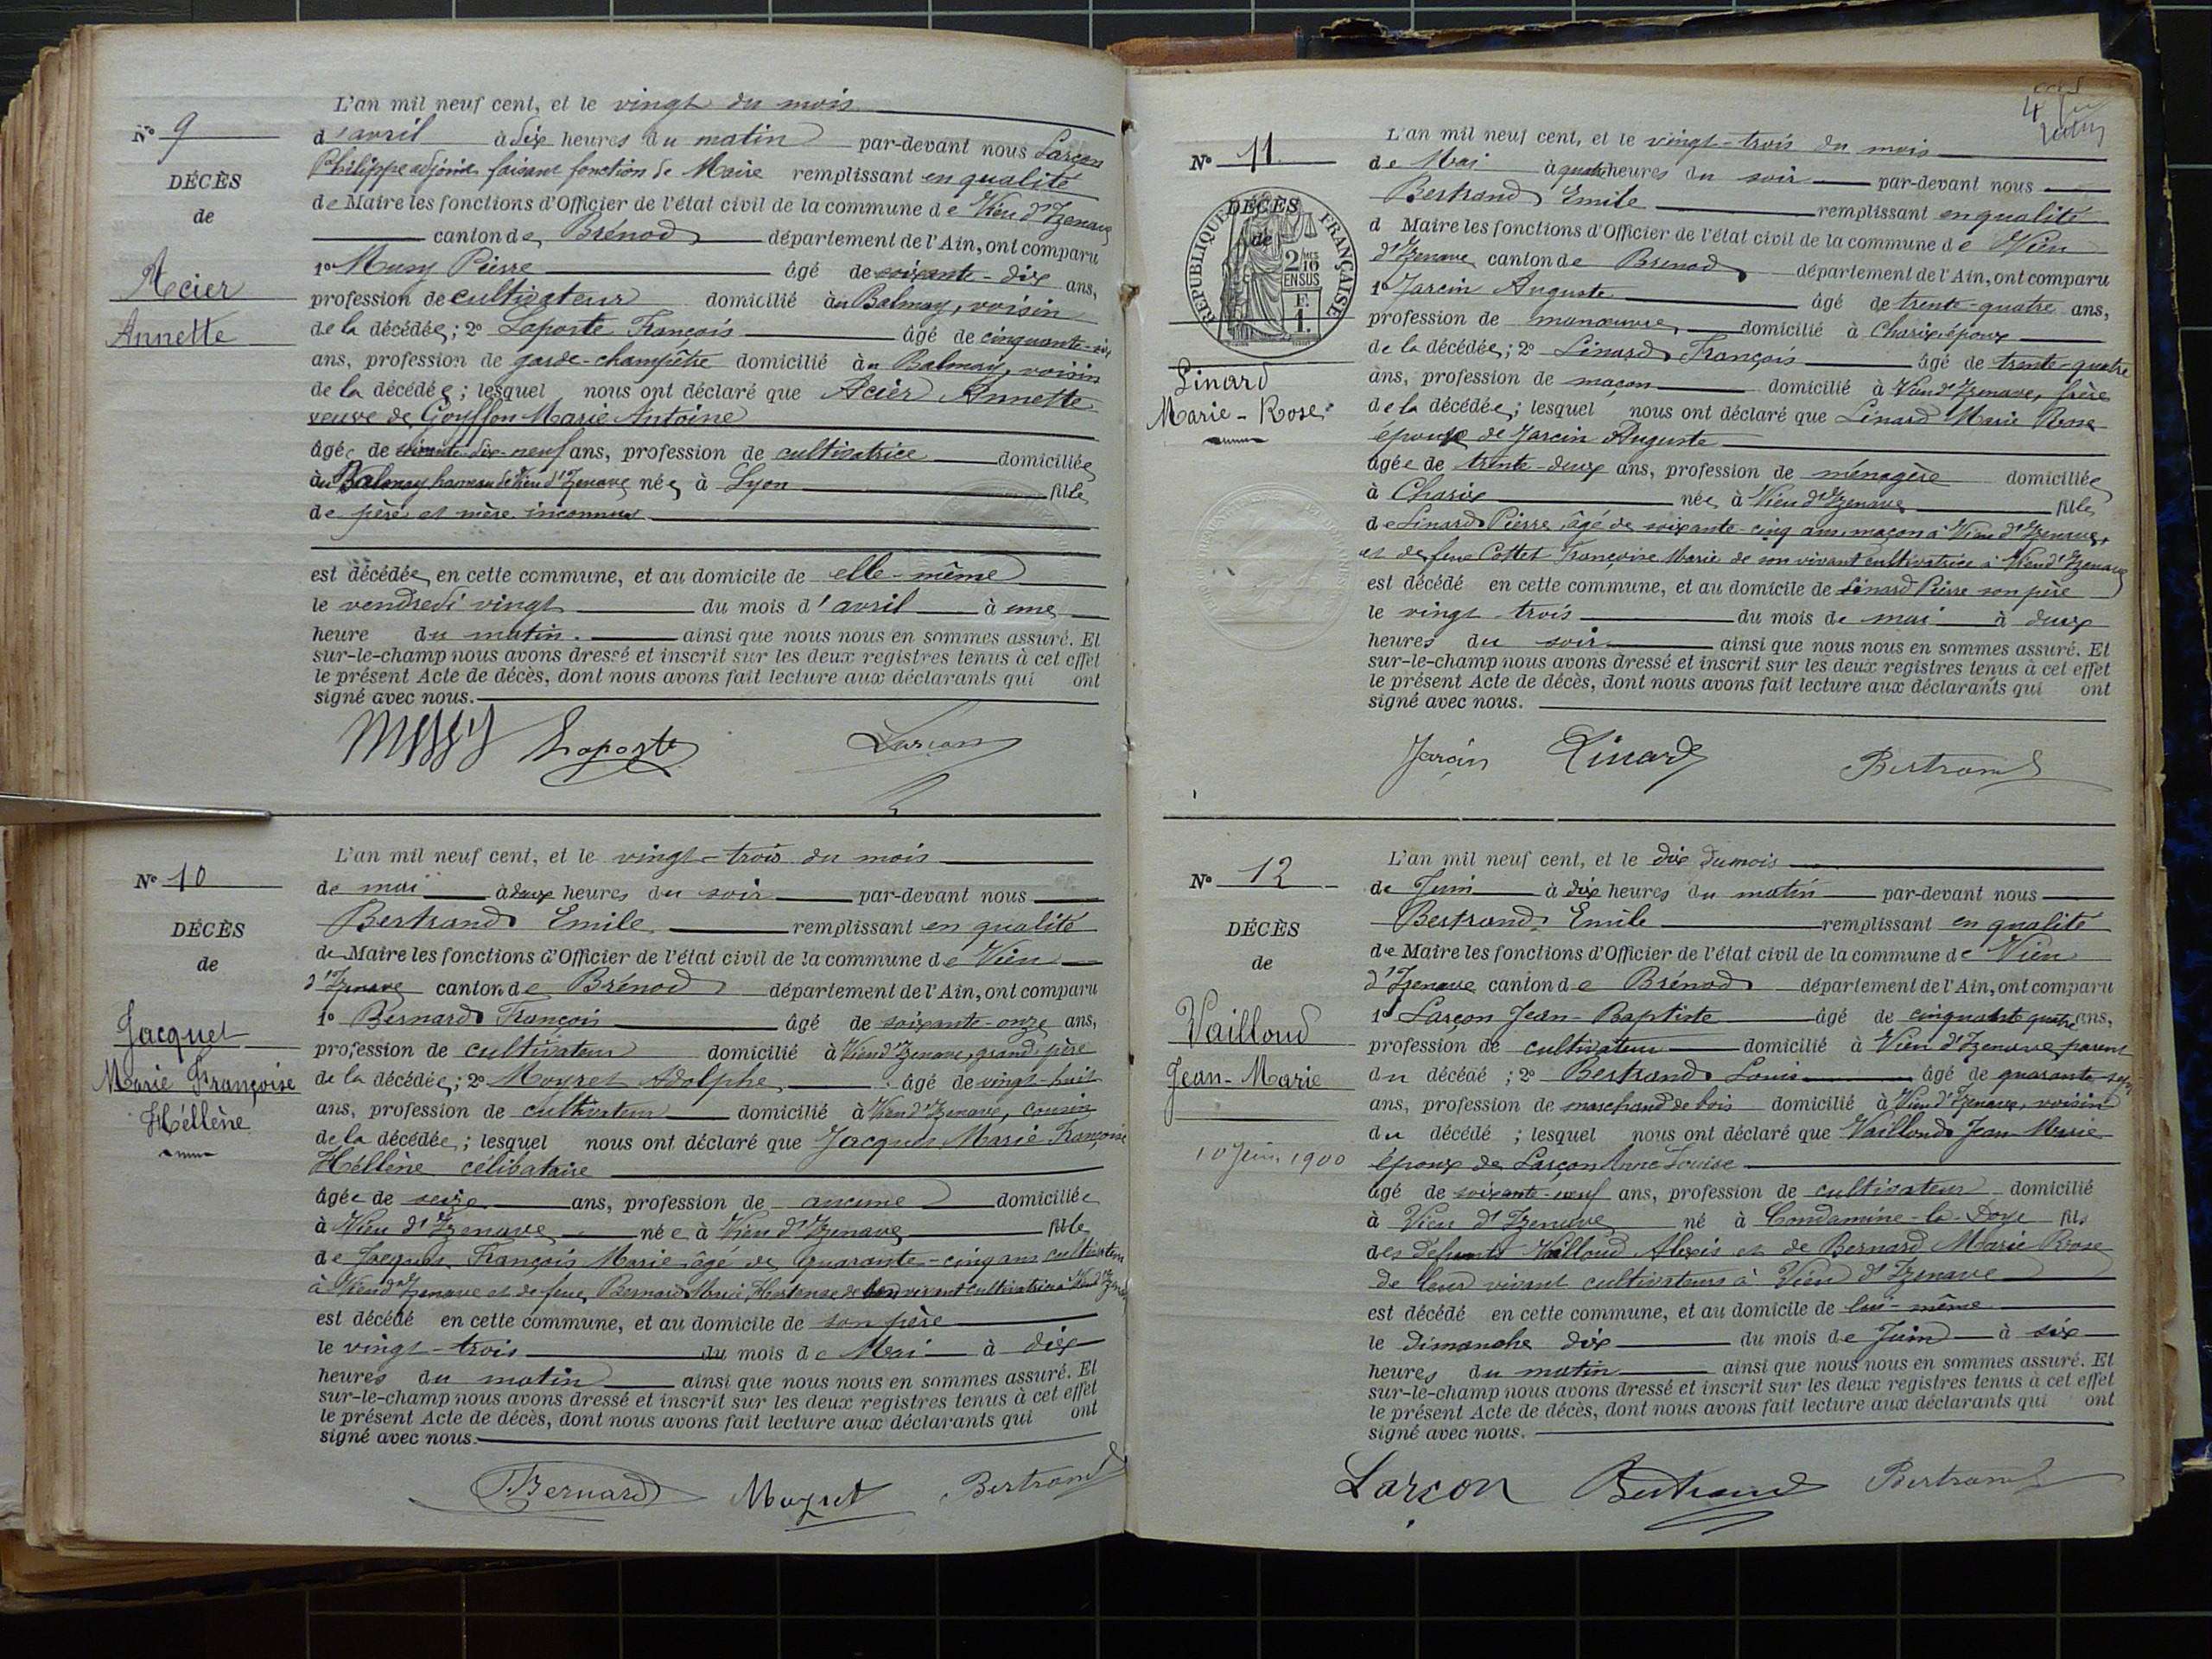 L'an mil neuf cent, et le vingt du mois
N° 9
d'avril à dix heures du matin par-devant nous Larçon
Philippe adjoint faisant fonction de Maire remplissant en qualité
DÉCÈS
de
Acier
Annette
de Maire les fonctions d'Officier de l'état civil de la commune de Vieu d'Izenave
canton de Brénod département de l'Ain, ont comparu
1° Musy Pierre âgé de soixante-dix ans,
profession de cultivateur domicilié au Balmay, voisin
de la décédée; 2° Laporte François âgé de cinquante-six
ans, profession de garde-champêtre domicilié au Balmay, voisin
de la décédée; lesquel nous ont déclaré que Acier Annette
veuve de Gouffon Marie Antoine
âgée de soixante-dix-neuf ans, profession de cultivatrice domiciliée
au Balmay hameau de Vieu d'Izenave née à Lyon fille
de père et mère inconnus
est décédée en cette commune, et au domicile de elle-même
le vendredi vingt du mois d'avril à une
heure du matin. ainsi que nous nous en sommes assuré. Et
sur-le-champ nous avons dressé et inscrit sur les deux registres tenus à cet effet
le présent Acte de décès, dont nous avons fait lecture aux déclarants qui ont
signé avec nous.
Laporte Larçon
L'an mil neuf cent, et le vingt-trois du mois
N° 10
de mai à deux heures du soir par-devant nous
Bertrand Emile remplissant en qualité
DÉCÈS
de
Jacquet
Marie Françoise
Héllène
de Maire les fonctions d'Officier de l'état civil de la commune de Vieu
d'Izenave canton de Brénod département de l'Ain, ont comparu
1° Bernard François âgé de soixante-onze ans,
profession de cultivateur domicilié à Vieu d'Izenave, grand-père
de la décédée; 2° Moyret Adolphe âgé de vingt-huit
ans, profession de cultivateur domicilié à Vieu d'Izenave, cousin
de la décédée; lesquel nous ont déclaré que Jacquet Marie Françoise
Héllène célibataire
âgée de seize ans, profession de aucune domiciliée
à Vieu d'Izenave née à Vieu d'Izenave fille
de Jacquet François Marie âgé de quarante-cinq ans cultivateur
à Vieu d'Izenave et de feue Bernard Marie Hortense de son vivant cultivatrice à Vieu d'Izenave
est décédé en cette commune, et au domicile de son père
le vingt-trois du mois de Mai à dix
heures du matin ainsi que nous nous en sommes assuré. Et
sur-le-champ nous avons dressé et inscrit sur les deux registres tenus à cet effet
le présent Acte de décès, dont nous avons fait lecture aux déclarants qui ont
signé avec nous.
Bernard Moyret Bertrand
L'an mil neuf cent, et le vingt-trois du mois
N° 11
de Mai à quatre heures du soir par-devant nous
Bertrand Emile remplissant en qualité
DÉCÈS
de
RÉPUBLIQUE FRANÇAISE
2/10 EN SUS
F. 1.
Linard
Marie-Rose
d Maire les fonctions d'Officier de l'état civil de la commune de Vieu
d'Izenave canton de Brénod département de l'Ain, ont comparu
1° Jarcin Auguste âgé de trente-quatre ans,
profession de manœuvre domicilié à Charix époux
de la décédée; 2° Linard François âgé de trente-quatre
ans, profession de maçon domicilié à Vieu d'Izenave, frère
de la décédée; lesquel nous ont déclaré que Linard Marie Rose
épouse de Jarcin Auguste
âgée de trente-deux ans, profession de ménagère domiciliée
à Charix née à Vieu d'Izenave fille
de Linard Pierre, âgé de soixante-cinq ans, maçon à Vieu d'Izenave,
et de feue Cottet Françoise Marie de son vivant cultivatrice à Vieu d'Izenave
est décédé en cette commune, et au domicile de Linard Pierre son père
le vingt-trois du mois de mai à deux
heures du soir ainsi que nous nous en sommes assuré. Et
sur-le-champ nous avons dressé et inscrit sur les deux registres tenus à cet effet
le présent Acte de décès, dont nous avons fait lecture aux déclarants qui ont
signé avec nous.
Jarcin Linard Bertrand
L'an mil neuf cent, et le dix du mois
N° 12
de Juin à dix heures du matin par-devant nous
Bertrand Emile remplissant en qualité
DÉCÈS
de
Vailloud
Jean-Marie
10 Juin 1900
de Maire les fonctions d'Officier de l'état civil de la commune de Vieu
d'Izenave canton de Brénod département de l'Ain, ont comparu
1° Larçon Jean-Baptiste âgé de cinquante quatre ans,
profession de cultivateur domicilié à Vieu d'Izenave parent
du décédé; 2° Bertrand Louis âgé de quarante-sept
ans, profession de marchand de bois domicilié à Vieu d'Izenave, voisin
du décédé; lesquel nous ont déclaré que Vailloud Jean Marie
époux de Larçon Anne Louise
âgé de soixante-neuf ans, profession de cultivateur domicilié
à Vieu d'Izenave né à Condamine-la-Doye fils
des défunts Vailloud Alexis et de Bernard Marie Rose
de leur vivant cultivateurs à Vieu d'Izenave
est décédé en cette commune, et au domicile de lui-même
le dimanche dix du mois de Juin à six
heures du matin ainsi que nous nous en sommes assuré. Et
sur-le-champ nous avons dressé et inscrit sur les deux registres tenus à cet effet
le présent Acte de décès, dont nous avons fait lecture aux déclarants qui ont
signé avec nous.
Larçon Bertrand Bertrand